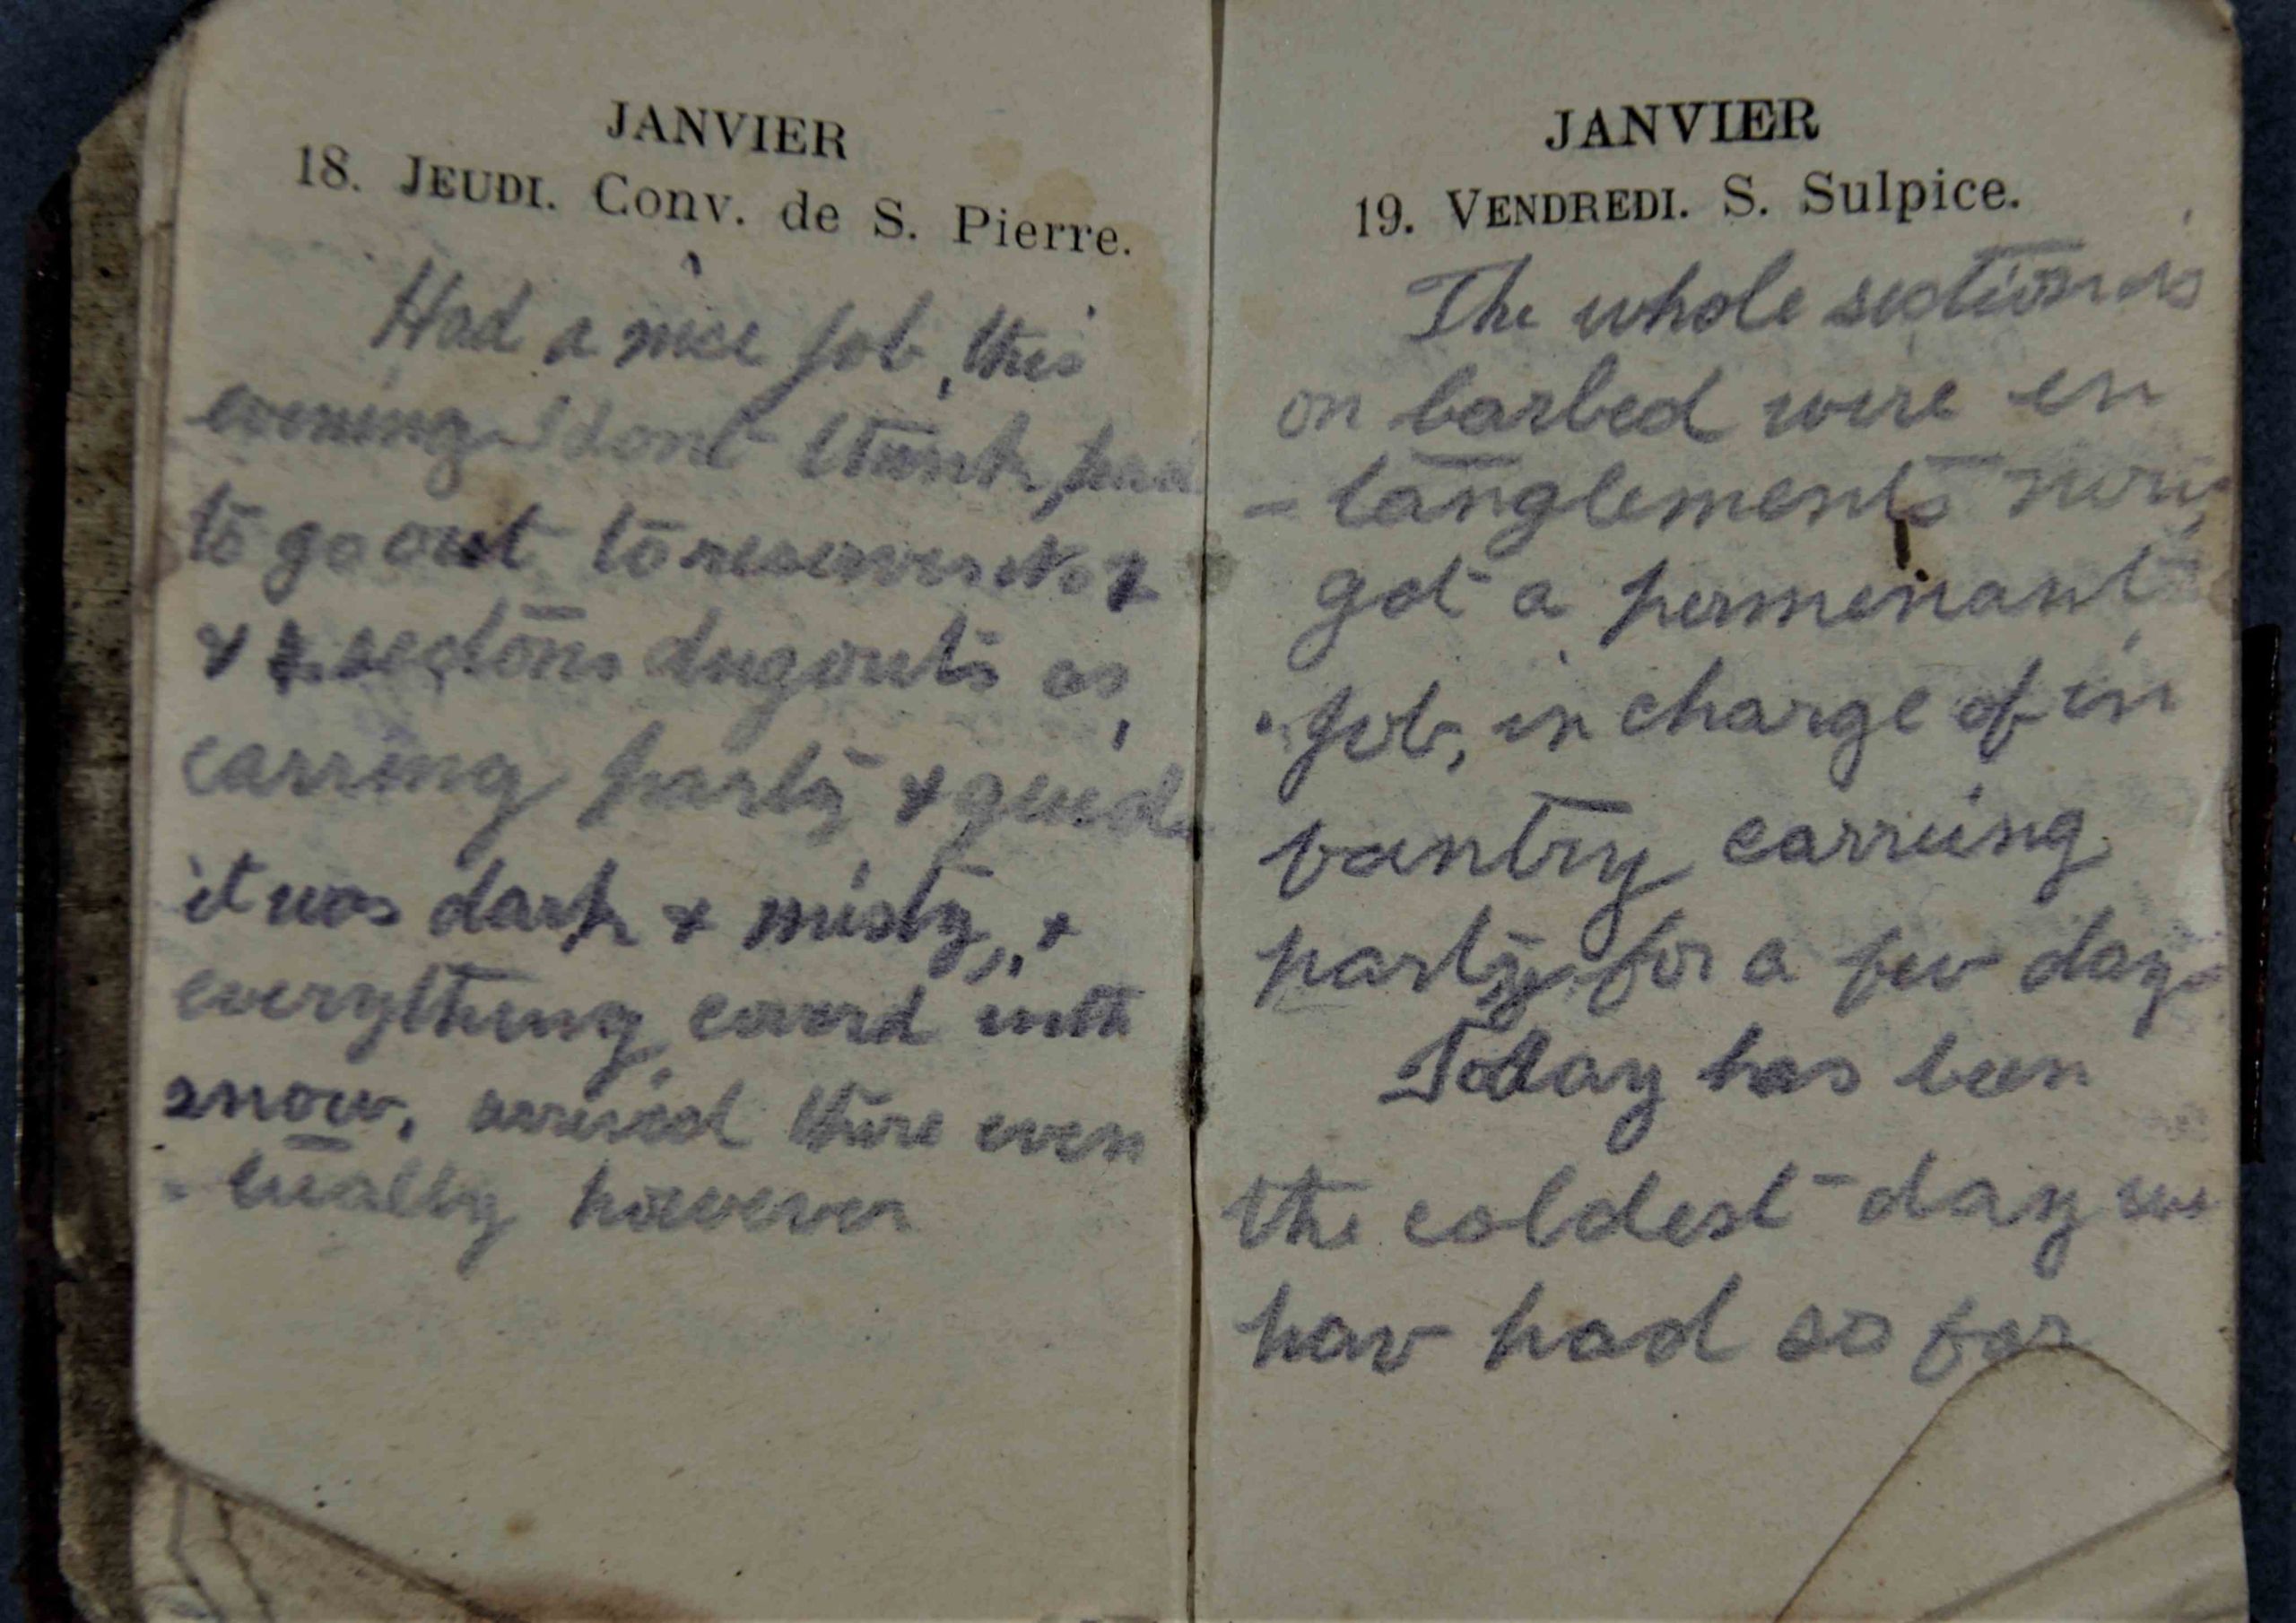 JANVIER
18. JEUDI. Conv. de S. Pierre.
Had a nice job, this
evening I dont think, had
to go out to reserves No 2
& sections dugouts as
carring party & guide
it was dark & misty, &
everything coverd with
snow. arrived there even
- tually however
JANVIER
19. VENDREDI. S. Sulpice.
The whole section is
on barbed wire en
- tanglements now,
got a permenant
job, in charge of in
fantry carrying
party for a few days
Today has been
the coldest day we
hav had so far